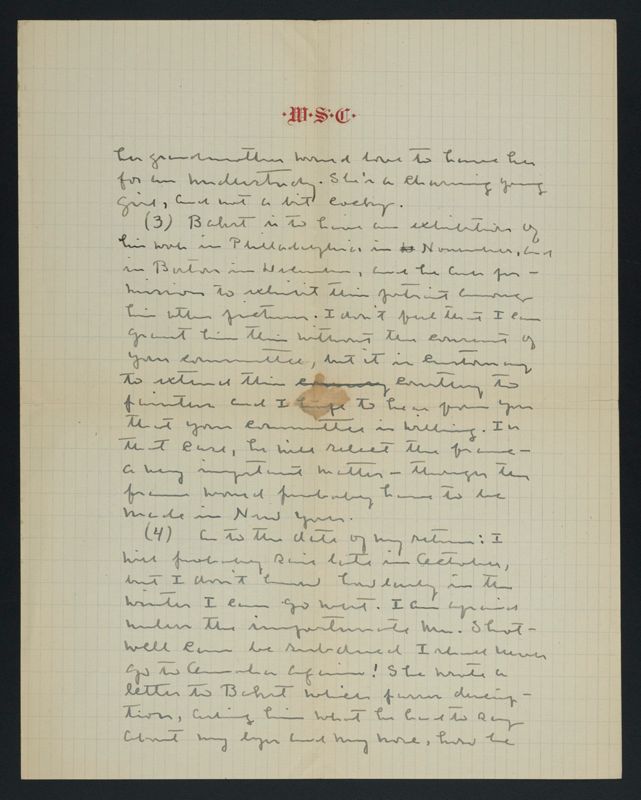 ·W·S·C·
her grandmother would love to have her
for an understudy. She's a charming young
girl, and not a bit cocky.
(3) Bakst is to have an exhibition of
his work in Philadelphia in November, and
in Boston in December, and he asks per-
mission to exhibit this portrait among
his other pictures. I don't feel that I can
grant him this without the consent of
your committee, but it is customary
to extend this courtesy to
painters and I hope to hear from you
that your committee is willing. In
that case, he will select the frame -
a very important matter - though the
frame would probably have to be
made in New York.
(4) As to the date of my return: I
will probably sail late in October,
but I don't know how early in the
winter I can go west. I am afraid
unless the importunate Mrs. Shot-
well can be subdued I shall never
go to Omaha again! She wrote a
letter to Bakst which passes descrip-
tion, asking him what he had to say
about my eyes and my nose, how he